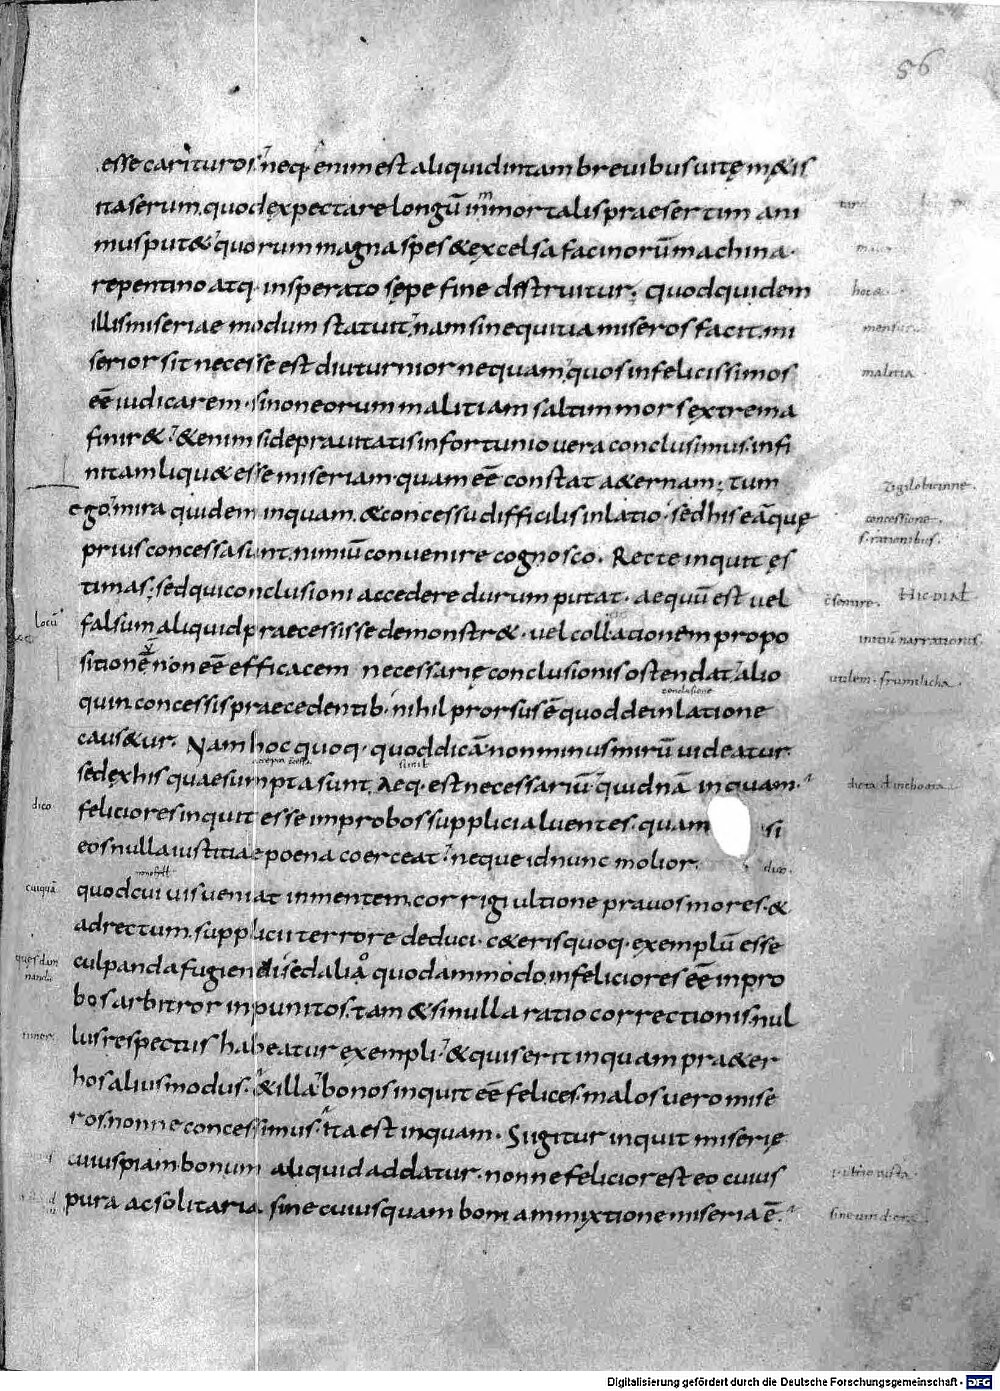 56
esse carituros. neq; enim est aliquid in tam breuibus uitę m&is
ita serum. quod expectare longū inmortalis praesertim ani
mus put&. quorum magna spes & excelsa facinorū machina.
repentino atq; insperato sępe fine destruitur; quod quidem
illis miseriae modum statuit. nam si nequitia miseros facit. mi
serior sit necesse est diuturnior nequam. quos infelicissimos
eē iudicarem. si non eorum malitiam saltim mors extrema
finir&. &enim si de prauitatis infortunio uera conclusimus. infi
nitam liqu& esse miseriam. quam eē constat a&ernam; tum
ego. mira quidem inquam. & concessu difficilis inlatio. sed his eā quę
prius concessa sunt. nimiū conuenire cognosco. Recte inquit ęs
timas; sed qui conclusioni accedere durum putat. aequū est uel
locū
falsum aliquid praecessisse demonstr&. uel collationem propo
sitionē non eē efficacem necessarię conclusionis ostendat. alio
conclusione
quin concessis praecedentib; nihil prorsus ē quod de inlatione
caus&ur. Nam hoc quoq; quod dicā non minus mirū uideatur
sed ex his quae sumpta sunt. Aeq; est necessariū. quid nā inquam.
dico
feliciores inquit esse improbos supplicia luentes. quam si
eos nulla iustitiae poena coerceat. neque id nunc molior.
cuiquā
quod cui uis ueniat in mentem. corrigi ultione prauos mores. &
ad rectum. supplicii terrore deduci. c&eris quoq; exemplū esse
culpanda fugiendi. sed alio quodammodo. infeliciores eē inpro
bos arbitror inpunitos. tam &si nulla ratio correctionis. nul
lus respectus habeatur exempli. & quis erit inquam pra&er
hos alius modus. & illa. bonos inquit eē felices. malos uero mise
ros. nonne concessimus. ita est inquam. Si igitur inquit miserię
cuiuspiam bonum aliquid addatur. nonne felicior est eo cuius
pura ac solitaria. sine cuiusquam boni ammixtione miseria ē.
malitia
concessione.
s. rationibus.
initiū narrationis.
Digitalisierung gefördert durch die Deutsche Forschungsgemeinschaft - DFG